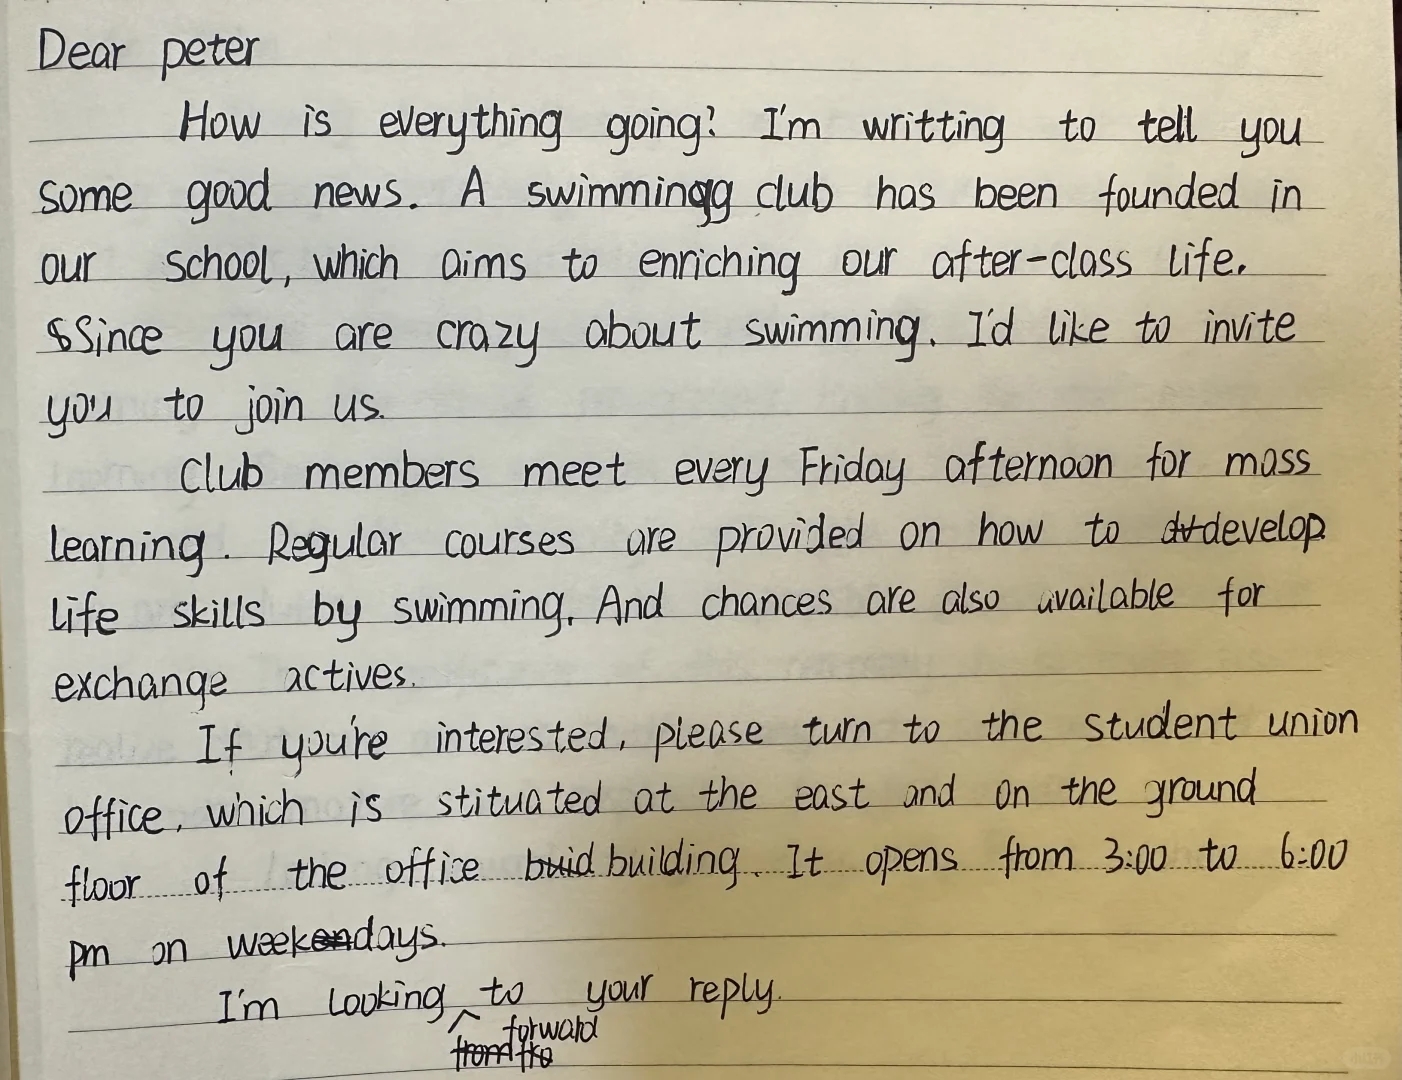 Dear peter
How is everything going? I'm writting to tell you
some good news. A swimming club has been founded in
our school, which aims to enriching our after-class life.
Since you are crazy about swimming, I'd like to invite
you to join us.
Club members meet every Friday afternoon for mass
learning. Regular courses are provided on how to develop
life skills by swimming. And chances are also available for
exchange actives.
If you're interested, please turn to the student union
office, which is stituated at the east and on the ground
floor of the office building. It opens from 3:00 to 6:00
pm on weekdays.
I'm looking forward to your reply.